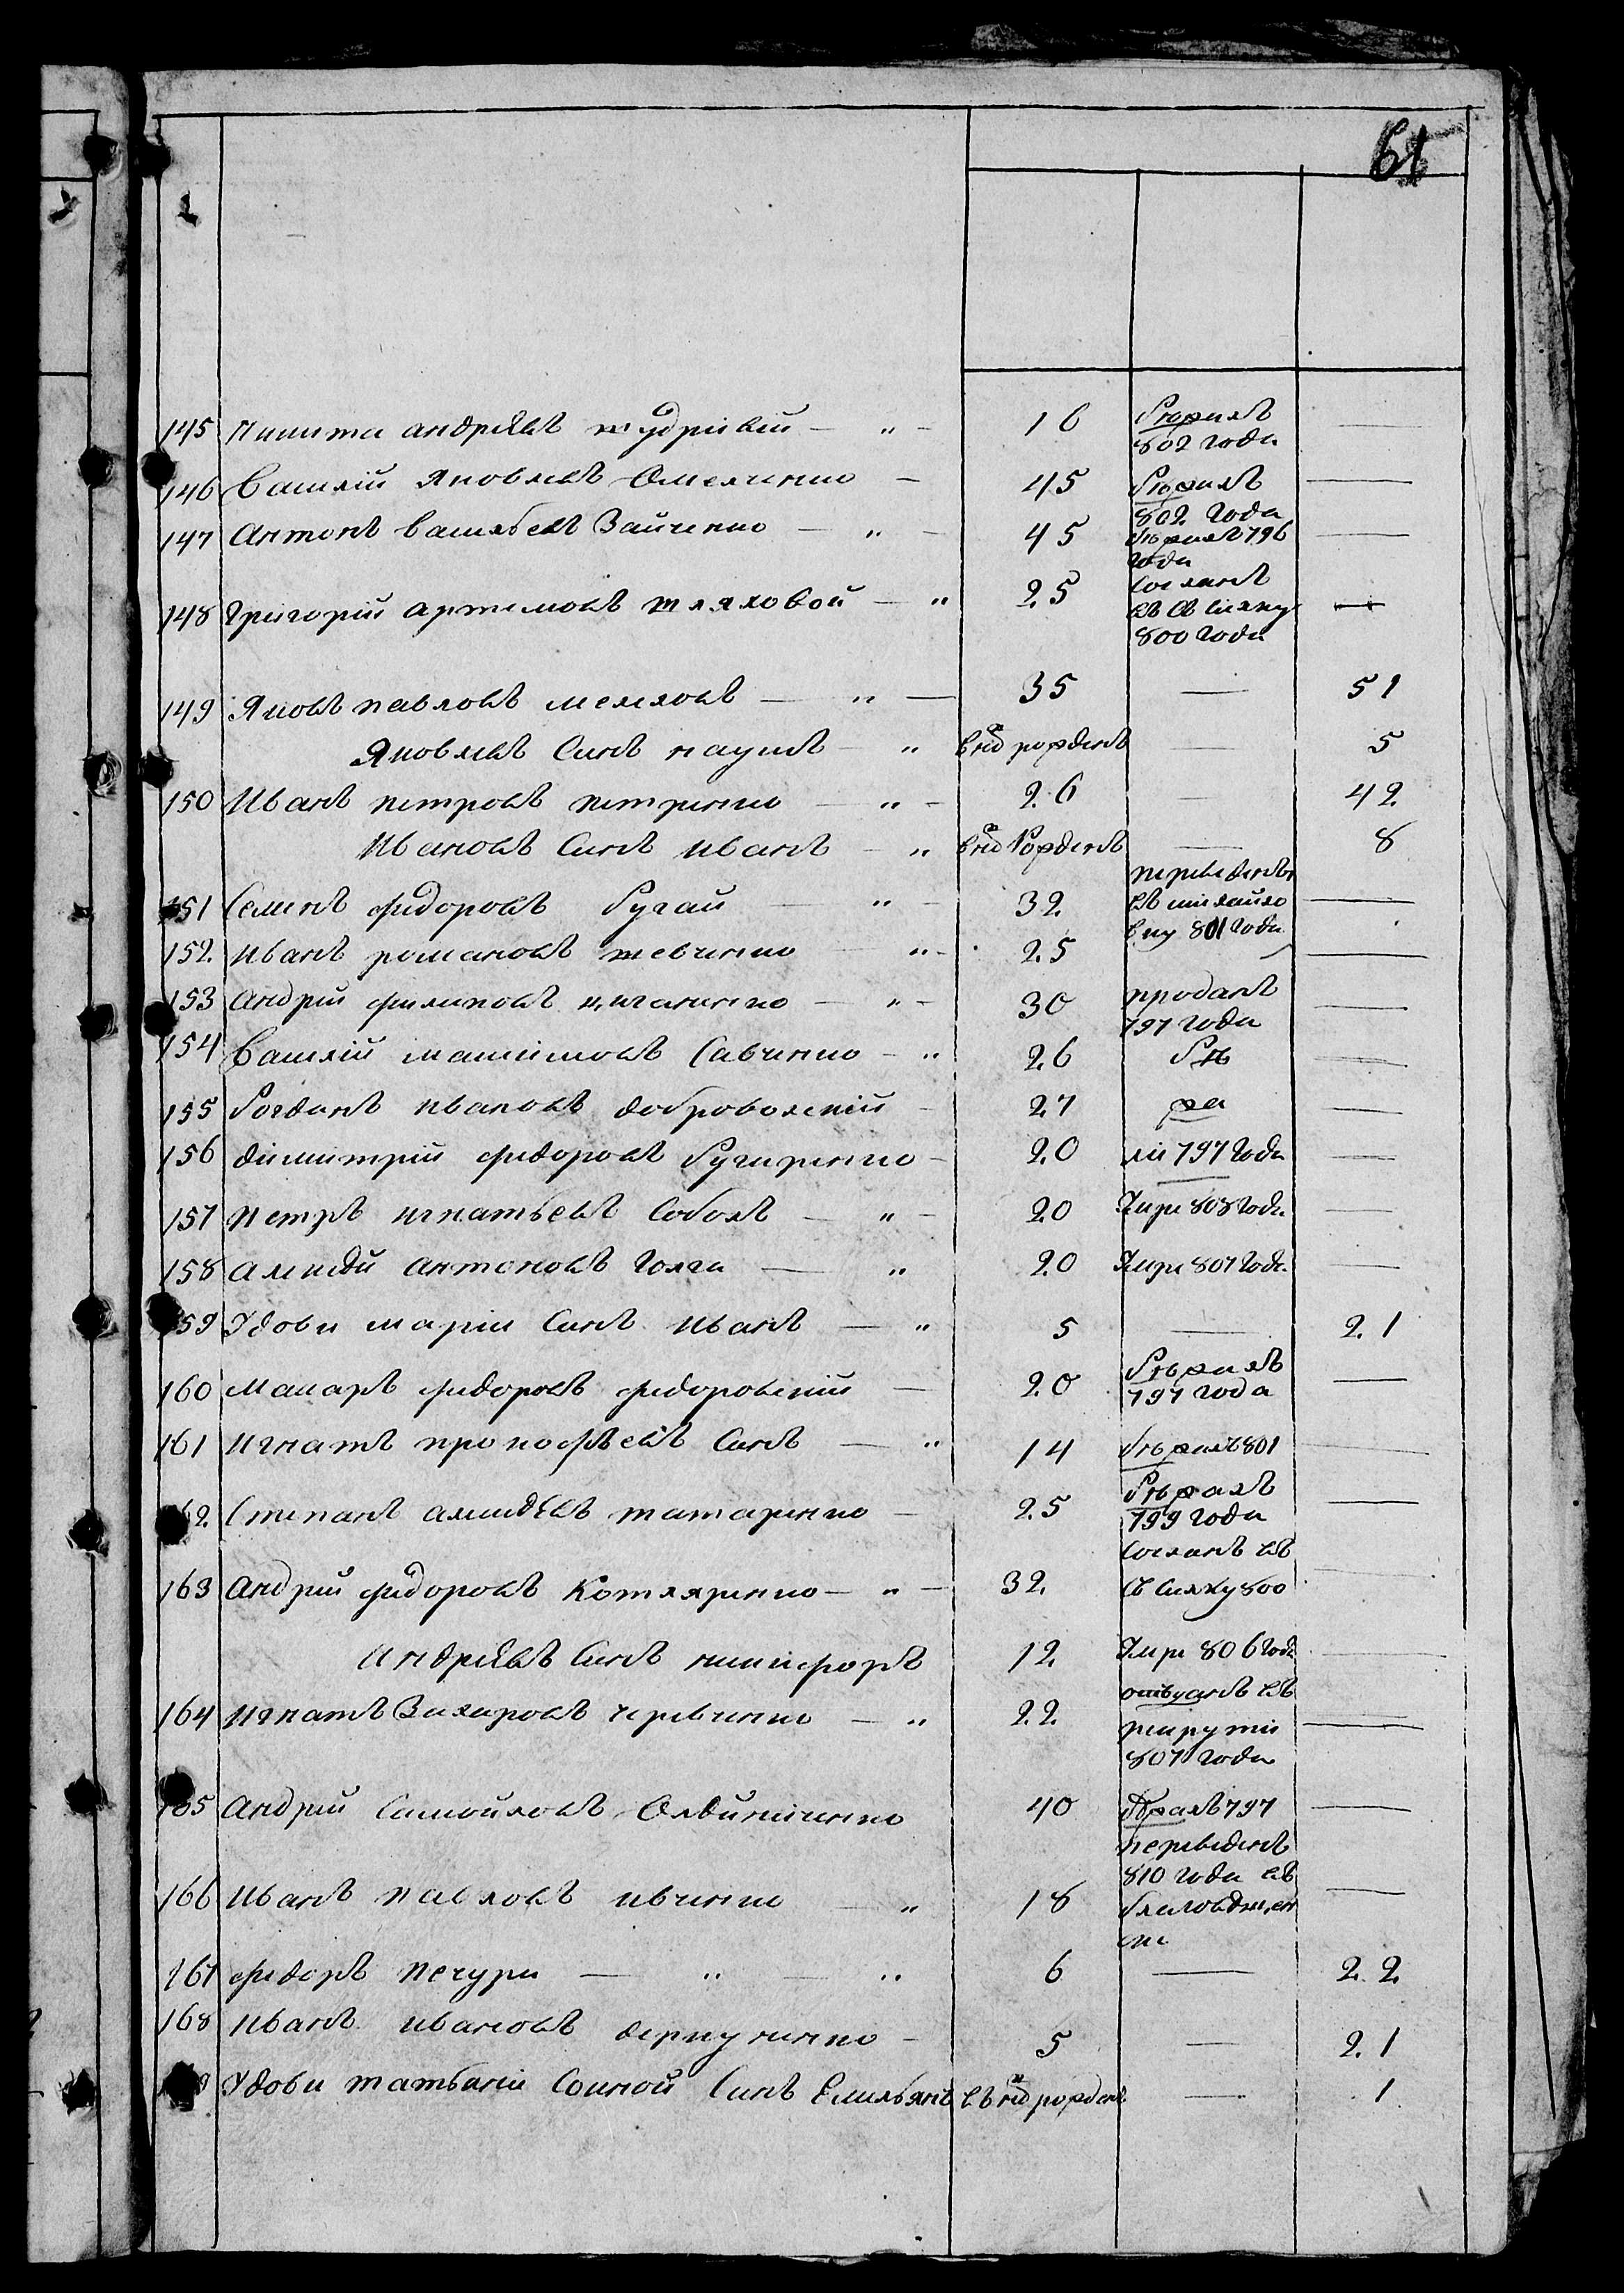 61
145 Никита андрѣевъ мудрикій — " — 16 бѣжалъ
802 года —
146 Василій Яковлевъ Омелченко — 45 бѣжалъ
802 года —
147 Антонъ васильевъ Зайченко — " — 45 бѣжалъ 796
года —
148 Григорій артемовъ тляховой — " 25 Сосланъ
въ Ссилку
800 года —
149 Яковъ павловъ — " — 35 — 51
Яковлевъ Синъ наумъ — " внов рожденъ — 5
150 Иванъ петровъ петренко — " — 26 — 42
Ивановъ Синъ иванъ — " внов Рожденъ — 8
151 Семенъ федоровъ Бугай — " — 32 переведенъ
въ михайло
вку 801 года —
152 иванъ романовъ шевченко — " — 25 —
153 андрей филиповъ циганенко — " — 30 проданъ
797 года —
154 Василій максимовъ Савченко — " 26 бѣ —
155 богданъ ивановъ доброволскій — 27 жа —
156 димитрій федоровъ — 20 ли 797 года —
157 петръ игнатьевъ Соболь — " — 20 Умре 808 года —
158 алексѣй антоновъ Голга — " 20 Умре 807 года —
159 Удови маріи Синъ иванъ — " 5 — 21
160 макаръ федоровъ федоровскій — 20 бѣжалъ
797 года —
161 игнатъ прокофьевъ Синъ — " 14 бѣжалъ 801 —
162 Степанъ алексѣевъ татаренко — 25 бѣжалъ
799 года —
163 андрей федоровъ Котляренко — " — 32 Сосланъ въ
Ссилку 800 —
Андрѣевъ Синъ никифоръ 12 Умре 806 года —
164 игнатъ Захаровъ черевченко — " 22 отданъ въ
рекрути
807 года —
165 андрей Самойловъ 40 бѣжалъ 797 —
166 иванъ павловъ ивченко — " 18 переведенъ
810 года въ —
167 федоръ печура — " — " 6 — 22
168 иванъ ивановъ деркуненко — 5 — 21
Удови татьяни Синъ Емельянъ въ нов рожденъ — 1